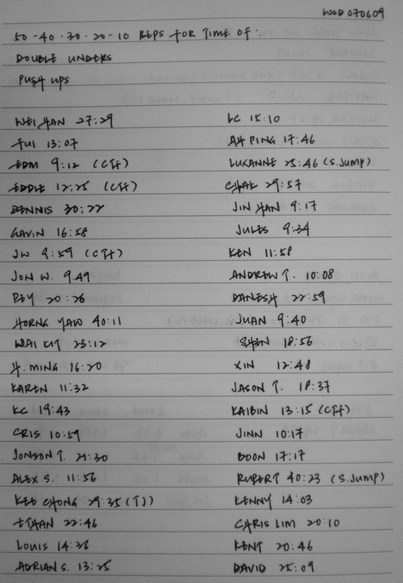 WOD 070609
50-40-30-20-10 REPS FOR TIME OF:
DOUBLE UNDERS
PUSH UPS
WEI HAN 27:29
FUI 13:07
EDM 9:12 (CFT)
EDDIE 12:25 (CFT)
DENNIS 30:22
GAVIN 16:58
JW 9:59 (CFT)
JON W. 9.49
REY 20:26
HORNG YAW 40:11
WAI KIT 23:12
H. MING 16:20
KAREN 11:32
KC 19:43
CRIS 10:59
JONSON T. 21:30
ALEX S. 11:56
KEE CHONG 29:35 (TJ)
ETHAN 22:46
LOUIS 14:26
ADRIAN S. 13:25
LC 15:10
AH PING 17:46
LUKANNE 25:46 (S.JUMP)
CHAE 29:57
JIN HAN 9:17
JULES 9:34
KEN 11:58
ANDREW T. 10:08
DANESH 22:59
JUAN 9:40
SHEN 18:56
XIN 12:48
JASON T. 18:37
KAIBIN 13:15 (CFT)
JINN 10:17
BOON 17:17
RUPERT 40:23 (S.JUMP)
KENNY 14:03
CHRIS LIM 20:10
KENT 20:46
DAVID 25:09